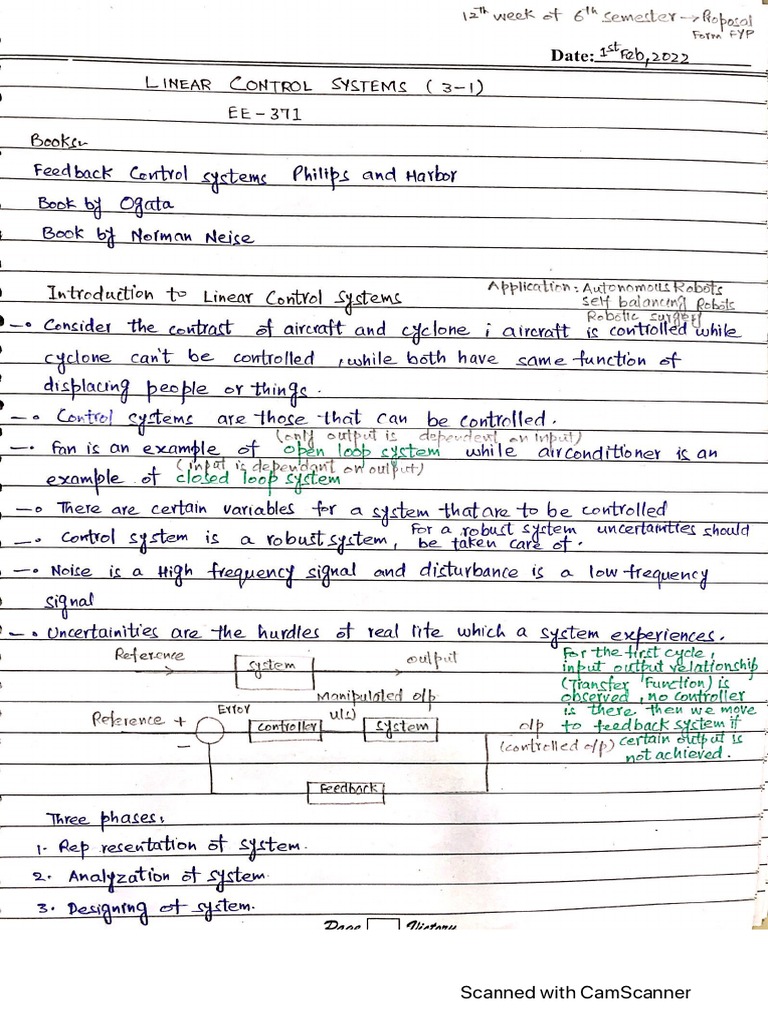 12th week of 6th semester → Proposal
Form FYP
Date: 1st Feb, 2022
LINEAR CONTROL SYSTEMS (3-1)
EE-371
Books:-
Feedback Control systems Philips and Harbor
Book by Ogata
Book by Norman Neise
Introduction to Linear Control Systems
Application: Autonomous Robots
self balancing Robots
Robotic surgery
Consider the contrast of aircraft and cyclone ; aircraft is controlled while
cyclone can't be controlled , while both have same function of
displacing people or things.
Control systems are those that can be controlled.
(only output is dependent on input)
Fan is an example of open loop system while airconditioner is an
(input is dependant on output)
example of closed loop system
There are certain variables for a system that are to be controlled
Control system is a robust system, For a robust system uncertainities should
be taken care of.
Noise is a High frequency signal and disturbance is a low frequency
signal
Uncertainities are the hurdles of real life which a system experiences.
Reference system output
For the first cycle,
input output relationship
(Transfer Function) is
observed, no controller
is there then we move
to feedback system if
certain output is
not achieved.
Manipulated o/p
Reference + Error controller u(s) system o/p
−
(controlled o/p)
Feedback
Three phases:
1. Rep resentation of system.
2. Analyzation of system.
3. Designing of system.
Page History
Scanned with CamScanner